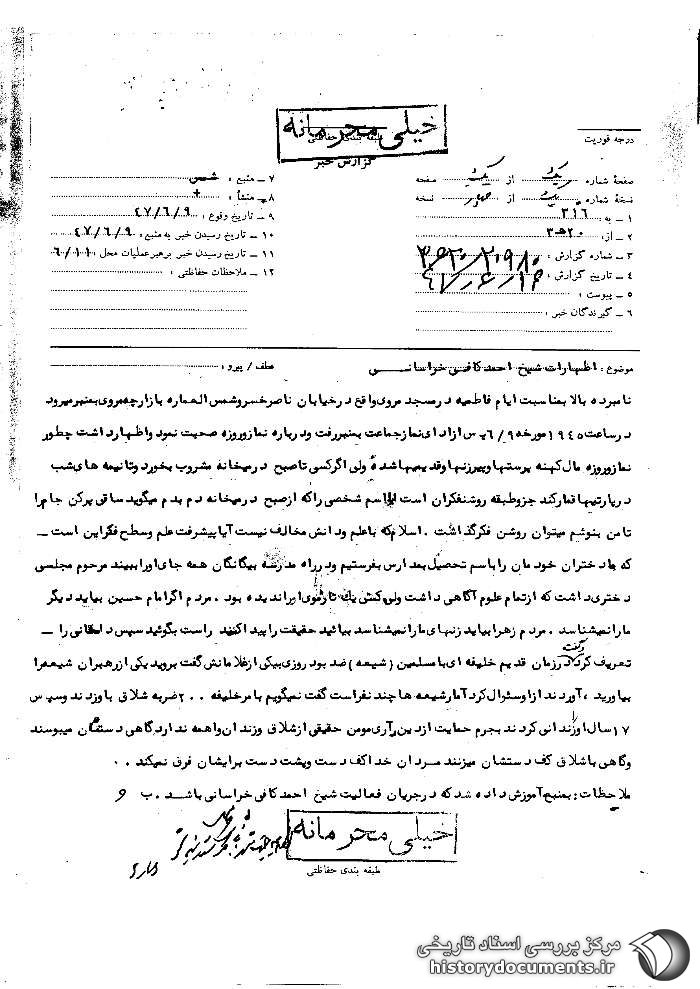 خیلی محرمانه
طبقه بندی حفاظتی
گزارش خبر
درجه فوریت
صفحهٔ شماره یک از یک صفحه
نسخهٔ شماره یک از نسخه
۱ - به : ۳۱۶
۲ - از : ۲۰ ه‍ ۳
۳ - شماره گزارش :
۴ - تاریخ گزارش :
۵ - پیوست :
۶ - گیرندگان خبر :
۷ - منبع : شمس
۸ - منشأ : +
۹ - تاریخ وقوع : ۴۷/۶/۹
۱۰ - تاریخ رسیدن خبر به منبع : ۴۷/۶/۹
۱۱ - تاریخ رسیدن خبر برهبر عملیات محل : ۶/۱۱
۱۲ - ملاحظات حفاظتی :
موضوع : اظهارات شیخ احمد کافی خراسانی
عطف / پیرو :
نامبرده بالا بمناسبت ایام فاطمیه در مسجد مروی واقع در خیابان ناصر خسرو شمس العماره بازارچه مروی بمنبر میرود
در ساعت ۱۹۴۵ مورخه ۶/۹ پس از ادای نماز جماعت بمنبر رفت و درباره نماز و روزه صحبت نمود و اظهار داشت چطور
نماز و روزه مال کهنه پرستها و پیرزنها و قدیمیها شده ولی اگر کسی تا صبح در میخانه مشروب بخورد و تا نیمه های شب
در پارتیها قمار کند جزو طبقه روشنفکران است اسم شخصی را که از صبح در میخانه دم بدم میگوید ساقی پر کن جام را
تا من بنوشم میتوان روشن فکر گذاشت . اسلام که با علم و دانش مخالف نیست آیا پیشرفت علم و سطح فکر این است –
که ما دختران خودمان را باسم تحصیل بمدارس بفرستیم و در راه مدرسه بیگانگان همه جای او را ببیند مرحوم مجلسی
دختری داشت که از تمام علوم آگاهی داشت ولی کس یک تار موی او را ندیده بود . مردم اگر امام حسین بیاید دیگر
ما را نمیشناسد . مردم زهرا بیاید زنهای ما را نمیشناسد بیائید حقیقت را پیدا کنند راست بگوئید سپس داستانی را –
تعریف کرد و گفت در زمان قدیم خلیفه ای با مسلمین ( شیعه ) ضد بود روزی بیکی از غلامانش گفت بروید یکی از رهبران شیعه را
بیاورید ، آوردند از او سئوال کرد آمار شیعه ها چند نفر است گفت نمیگویم بامر خلیفه ۲۰۰ ضربه شلاق باو زدند و سپس
۱۷ سال او را زندانی کردند بجرم حمایت از دین ، آری مومن حقیقی از شلاق و زندان واهمه ندارد گاهی دستشان میبوسند
و گاهی با شلاق کف دستشان میزنند مردان خدا کف دست و پشت دست برایشان فرق نمیکند .
ملاحظات : بمنبع آموزش داده شد که در جریان فعالیت شیخ احمد کافی خراسانی باشد . ب
خیلی محرمانه
طبقه بندی حفاظتی
مرکز بررسی اسناد تاریخی
historydocuments.ir